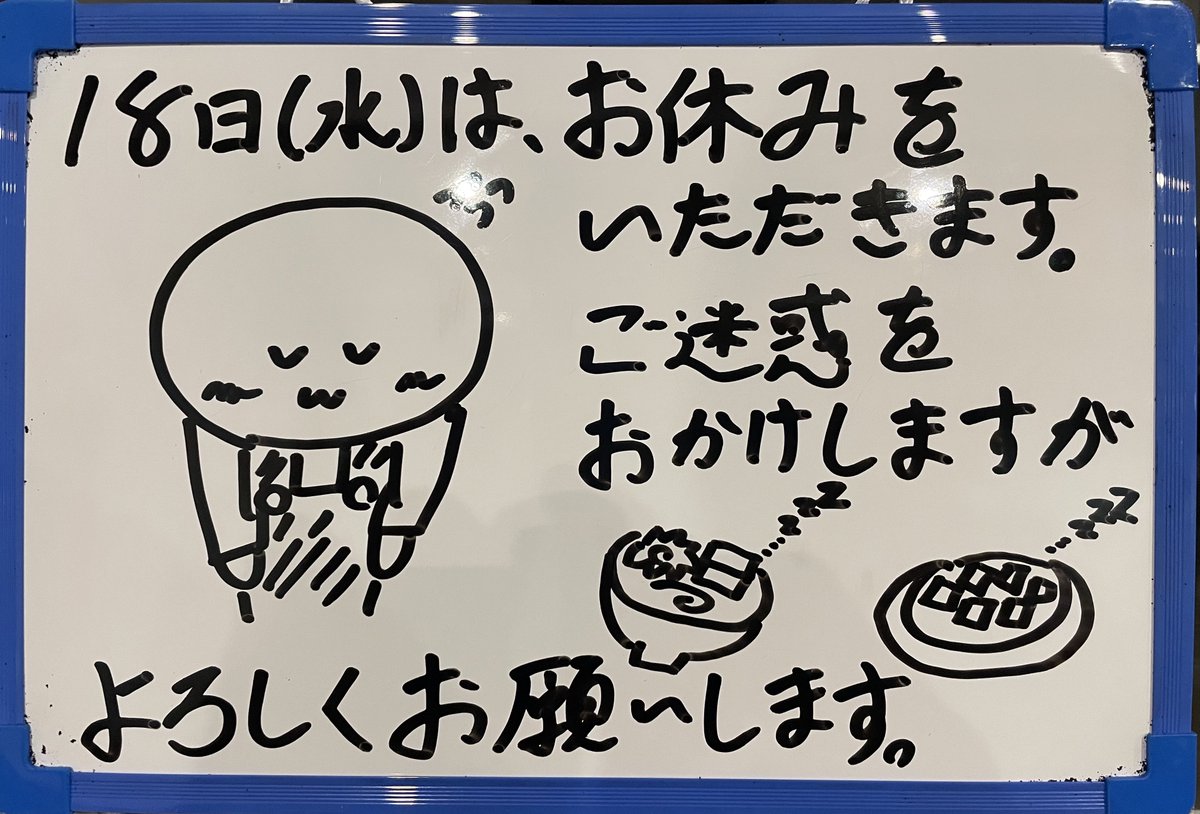 18日(水)は、お休みを
いただきます。
ご迷惑を
おかけしますが
zzz
zzz
よろしくお願いします。